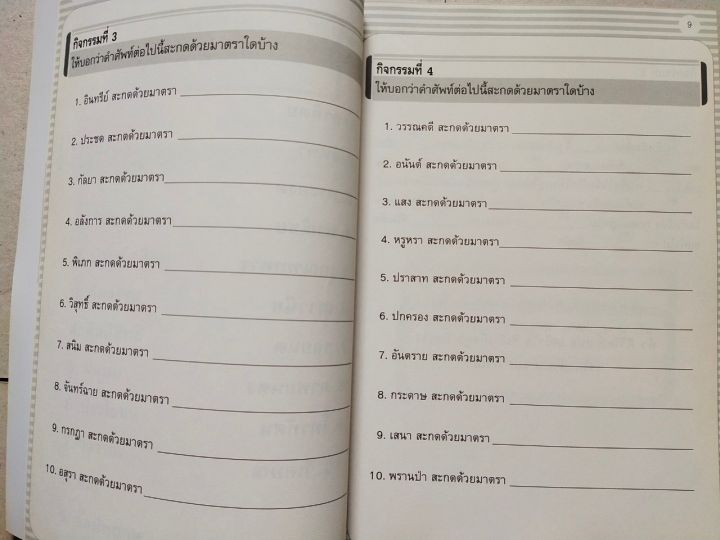 กิจกรรมที่ 3
ให้บอกว่าคำศัพท์ต่อไปนี้สะกดด้วยมาตราใดบ้าง
1. อินทรีย์ สะกดด้วยมาตรา
2. ประชด สะกดด้วยมาตรา
3. กัลยา สะกดด้วยมาตรา
4. อลังการ สะกดด้วยมาตรา
5. พิเภก สะกดด้วยมาตรา
6. วิสุทธิ์ สะกดด้วยมาตรา
7. สนิม สะกดด้วยมาตรา
8. จันทร์ฉาย สะกดด้วยมาตรา
9. กรกฎา สะกดด้วยมาตรา
10. อสุรา สะกดด้วยมาตรา
9
กิจกรรมที่ 4
ให้บอกว่าคำศัพท์ต่อไปนี้สะกดด้วยมาตราใดบ้าง
1. วรรณคดี สะกดด้วยมาตรา
2. อนันต์ สะกดด้วยมาตรา
3. แสง สะกดด้วยมาตรา
4. หรูหรา สะกดด้วยมาตรา
5. ปราสาท สะกดด้วยมาตรา
6. ปกครอง สะกดด้วยมาตรา
7. อันตราย สะกดด้วยมาตรา
8. กระดาษ สะกดด้วยมาตรา
9. เสนา สะกดด้วยมาตรา
10. พรานป่า สะกดด้วยมาตรา